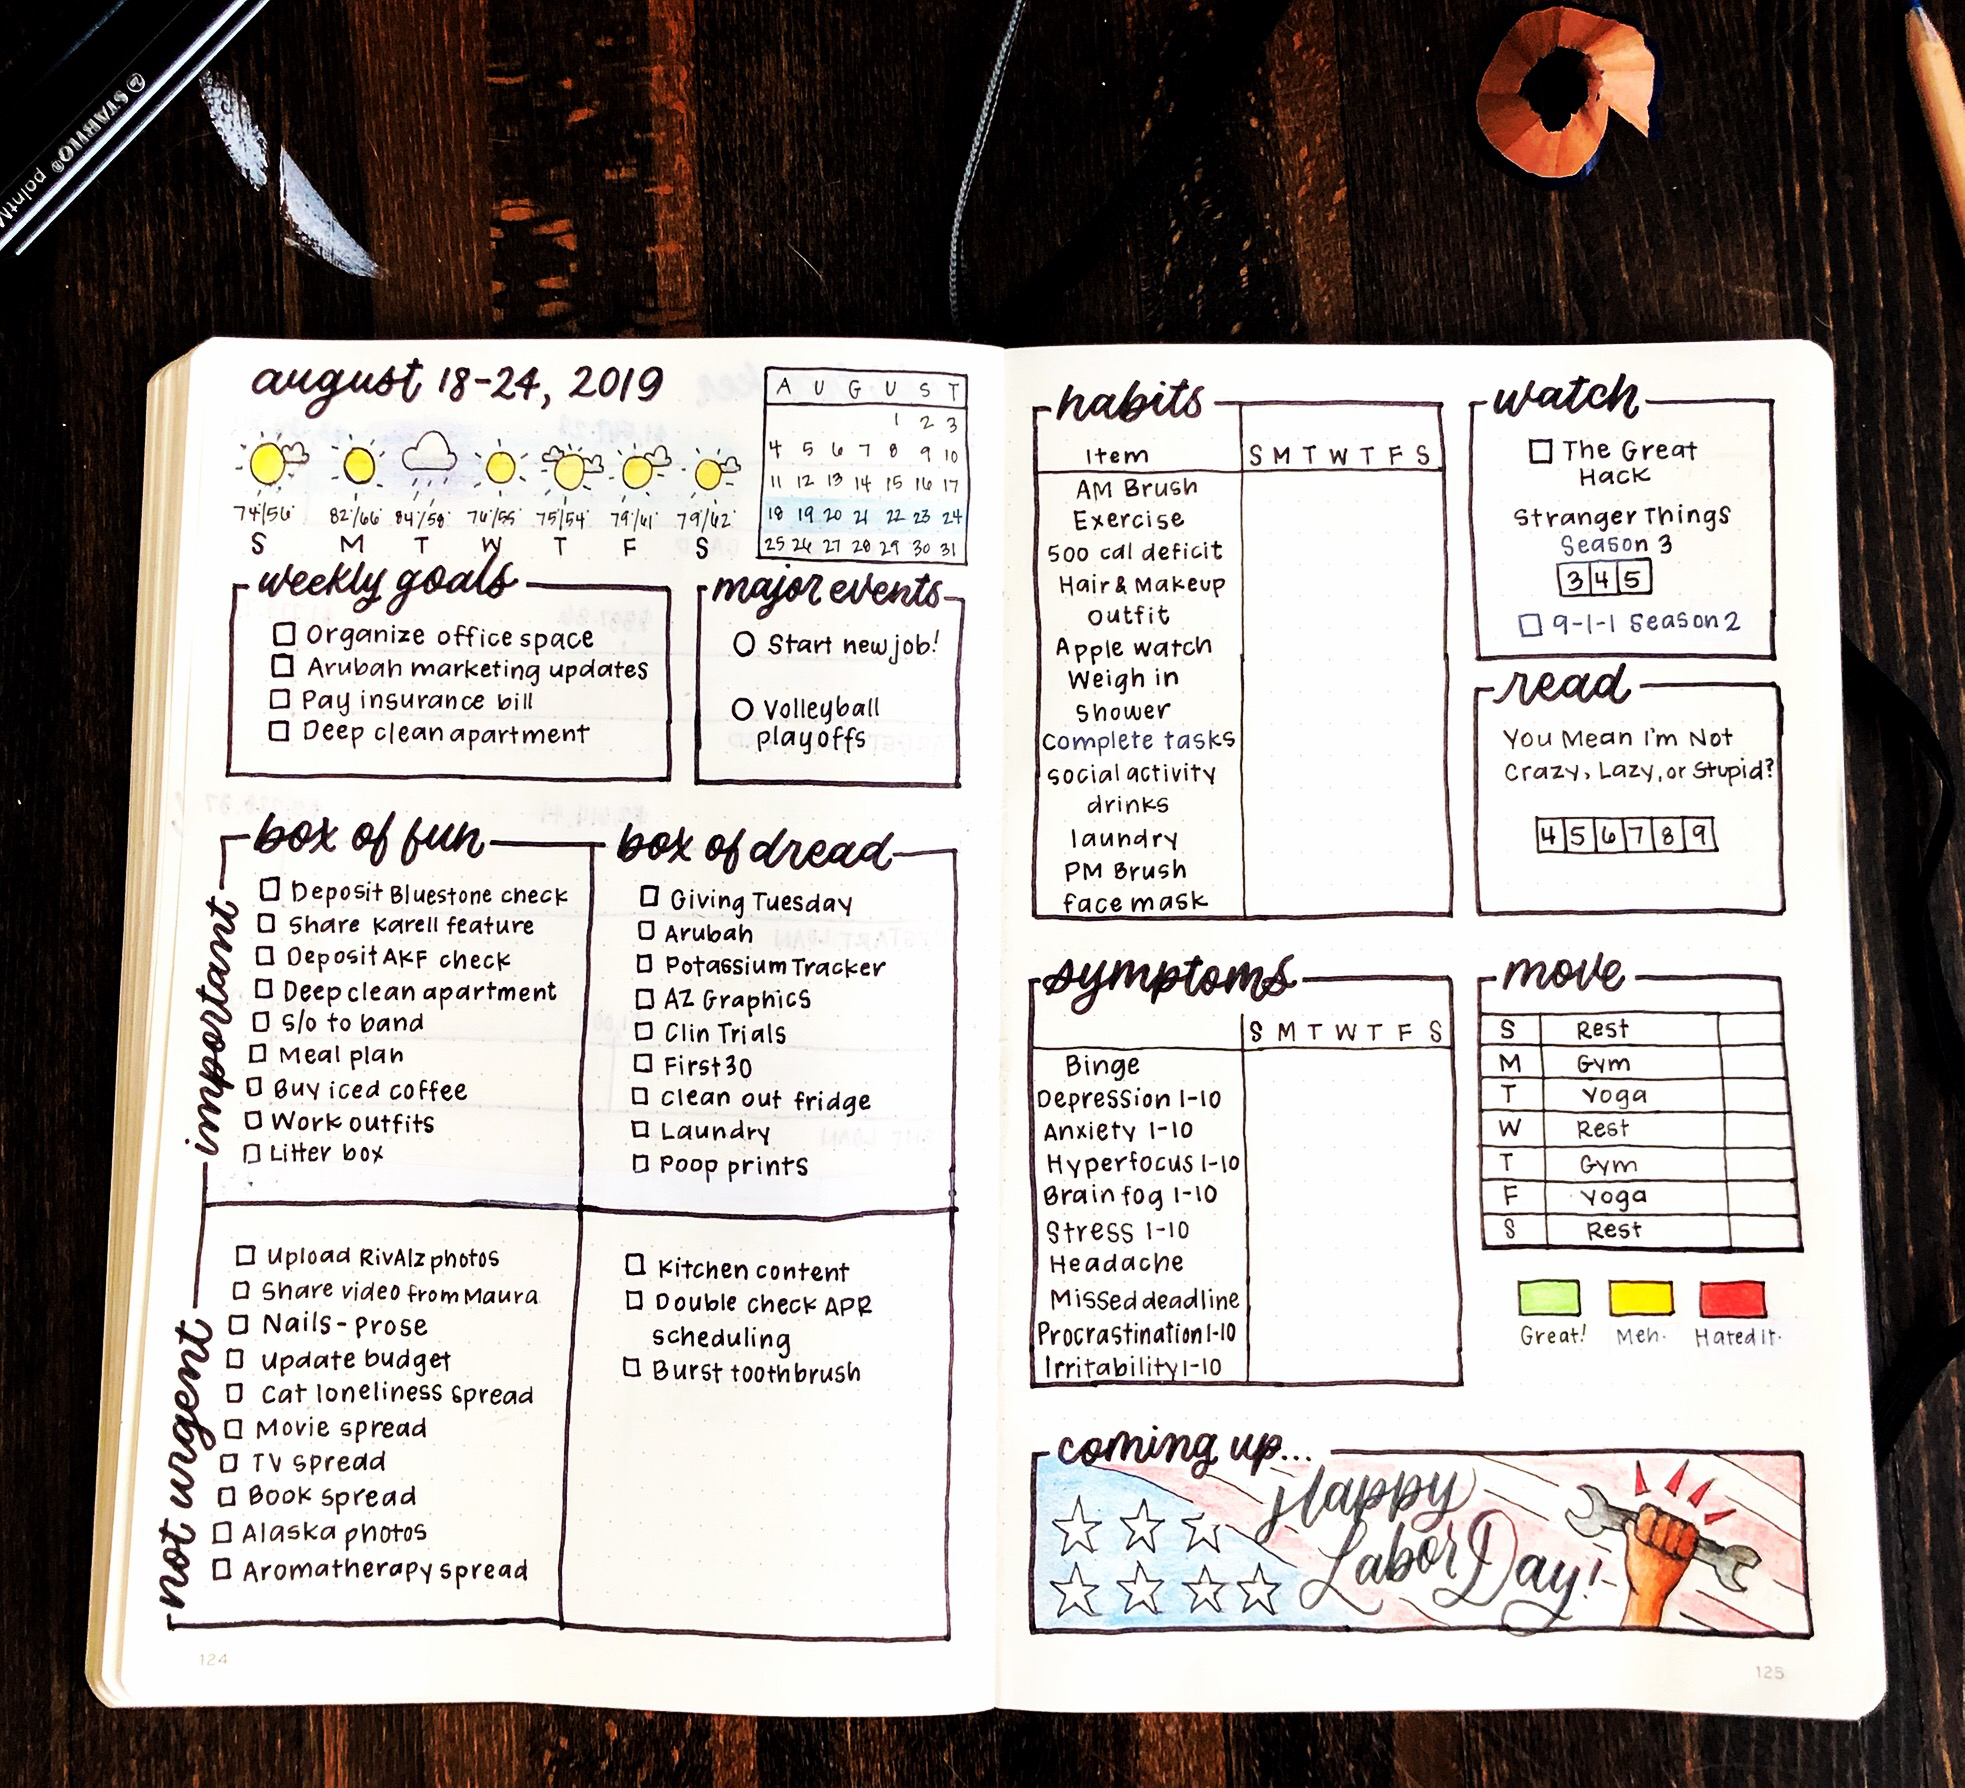 STABILO®
pointM
august 18-24, 2019
74°/56° 82°/66° 84°/58° 76°/55° 75°/54° 79°/61° 79°/62°
S M T W T F S
AUGUST
1 2 3
4 5 6 7 8 9 10
11 12 13 14 15 16 17
18 19 20 21 22 23 24
25 26 27 28 29 30 31
weekly goals
Organize office space
Arubah marketing updates
Pay insurance bill
Deep clean apartment
major events
Start new job!
Volleyball
playoffs
important
box of fun
Deposit Bluestone check
Share Karell feature
Deposit AKF check
Deep clean apartment
S/o to band
Meal plan
Buy iced coffee
Work outfits
Litter box
box of dread
Giving Tuesday
Arubah
Potassium Tracker
AZ Graphics
Clin Trials
First 30
Clean out fridge
Laundry
Poop prints
not urgent
Upload RivAlz photos
Share video from Maura
Nails-prose
Update budget
Cat loneliness spread
Movie spread
TV spread
Book spread
Alaska photos
Aromatherapy spread
Kitchen content
Double check APR
scheduling
Burst toothbrush
124
habits
Item S M T W T F S
AM Brush
Exercise
500 cal deficit
Hair & Makeup
Outfit
Apple watch
Weigh in
Shower
Complete tasks
Social activity
drinks
laundry
PM Brush
face mask
watch
The Great
Hack
Stranger Things
Season 3
3 4 5
9-1-1 Season 2
read
You Mean I'm Not
Crazy, Lazy, or Stupid?
4 5 6 7 8 9
symptoms
S M T W T F S
Binge
Depression 1-10
Anxiety 1-10
Hyperfocus 1-10
Brain fog 1-10
Stress 1-10
Headache
Missed deadline
Procrastination 1-10
Irritability 1-10
move
S Rest
M Gym
T Yoga
W Rest
T Gym
F Yoga
S Rest
Great! Meh. Hated it.
coming up...
Happy
Labor Day!
125